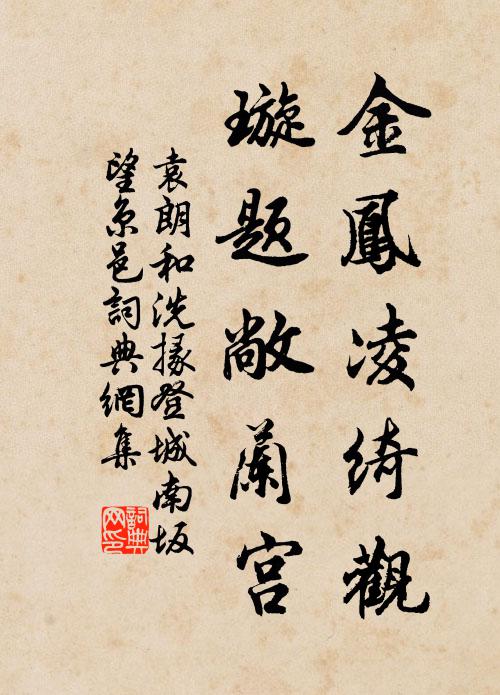 金鳳凌綺觀
璇题敞蘭宫
袁朗和洗掾登城南坂
望京邑詞典網集
詞典
网印